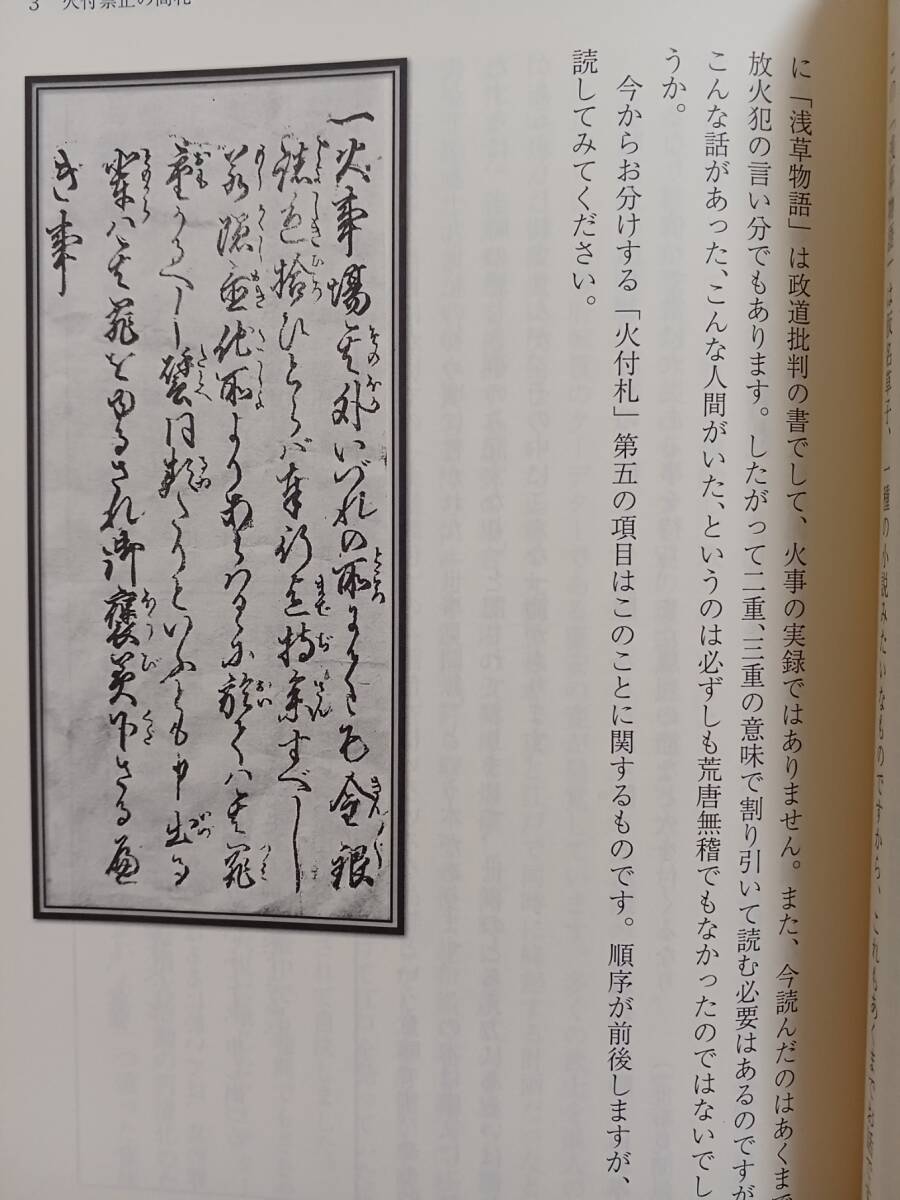 3 火付禁止の高札
一種の小説みたいなものですから、これもあくまでお話で
に「浅草物語」は政道批判の書でして、火事の実録ではありません。また、今読んだのはあくまで
放火犯の言い分でもあります。したがって二重、三重の意味で割り引いて読む必要はあるのですが
こんな話があった、こんな人間がいた、というのは必ずしも荒唐無稽でもなかったのではないでし
うか。
今からお分けする「火付札」第五の項目はこのことに関するものです。順序が前後しますが、
読してみてください。
一火事場其外いづれの所にても金銀
諸色拾ひとらバ奉行迄持参すべし
若隠置他所よりあらハるるに於てハ其罪
重かるべし譬同類たりといふとも申出る
輩ハ其罪をゆるされ御褒美下さるべ
き事